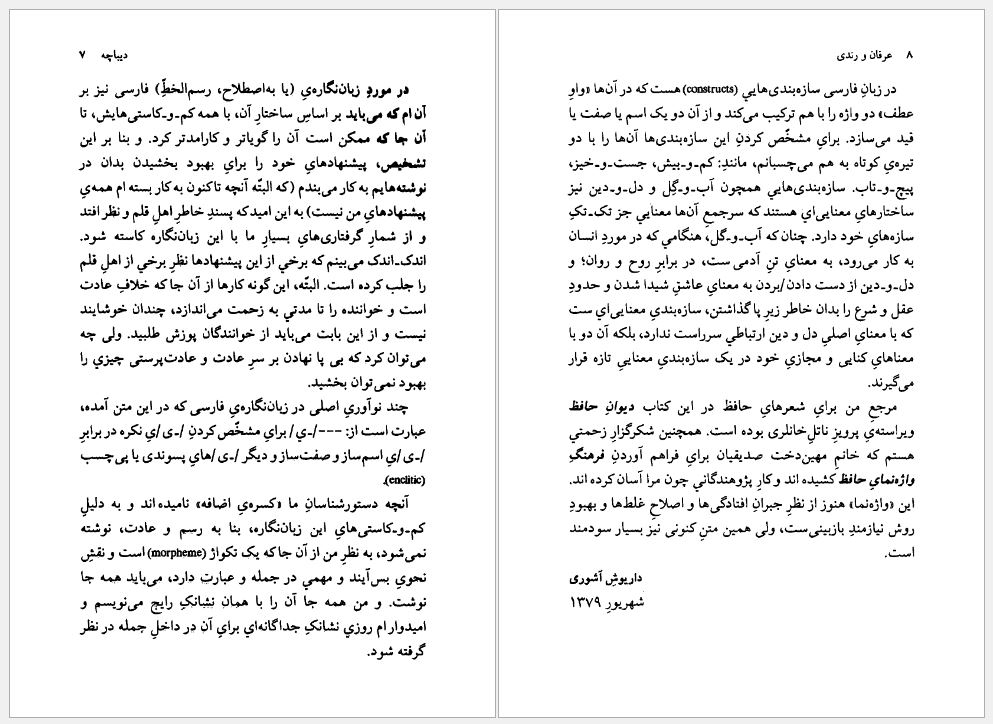 دیباچه ۷
در موردِ زبان‌نگاره‌یِ (یا به‌اصطلاح، رسم‌الخطِّ) فارسی نیز بر
آن ام که می‌باید بر اساسِ ساختارِ آن، با همه کم‌ـ‌و‌ـ‌کاستی‌هایش، تا
آن جا که ممکن است آن را گویاتر و کارامدتر کرد. و بنا بر این
تشخیص، پیشنهادهایِ خود را برایِ بهبود بخشیدن بدان در
نوشته‌هایم به کار می‌بندم (که البتّه آنچه تاکنون به کار بسته ام همه‌یِ
پیشنهادهایِ من نیست) به این امید که پسندِ خاطرِ اهلِ قلم و نظر افتد
و از شمارِ گرفتاری‌هایِ بسیارِ ما با این زبان‌نگاره کاسته شود.
اندک‌ـ‌اندک می‌بینم که برخي از این پیشنهادها نظرِ برخي از اهلِ قلم
را جلب کرده است. البتّه، این گونه کارها از آن جا که خلافِ عادت
است و خواننده را تا مدتي به زحمت می‌اندازد، چندان خوشایند
نیست و از این بابت می‌باید از خوانندگان پوزش طلبید. ولی چه
می‌توان کرد که بی پا نهادن بر سرِ عادت و عادت‌پرستی چیزي را
بهبود نمی‌توان بخشید.
چند نوآوریِ اصلی در زبان‌نگاره‌یِ فارسی که در این متن آمده،
عبارت است از: ---/ـي/ برایِ مشخّص کردنِ /ـی/یِ نکره در برابرِ
/ـی/یِ اسم‌ساز و صفت‌ساز و دیگر /ـی/هایِ پسوندی یا پی‌چسب
(enclitic).
آنچه دستورشناسانِ ما «کسره‌یِ اضافه» نامیده اند و به دلیلِ
کم‌ـ‌و‌ـ‌کاستی‌هایِ این زبان‌نگاره، بنا به رسم و عادت، نوشته
نمی‌شود، به نظرِ من از آن جا که یک تکواژ (morpheme) است و نقشِ
نحویِ بس‌آیند و مهمي در جمله و عبارت دارد، می‌باید همه جا
نوشت. و من همه جا آن را با همان نشانکِ رایج می‌نویسم و
امیدوار ام روزي نشانکِ جداگانه‌اي برایِ آن در داخلِ جمله در نظر
گرفته شود.
۸ عرفان و رندی
در زبانِ فارسی سازه‌بندی‌هایي (constructs) هست که در آن‌ها «واوِ
عطف» دو واژه را با هم ترکیب می‌کند و از آن دو یک اسم یا صفت یا
قید می‌سازد. برایِ مشخّص کردنِ این سازه‌بندی‌ها آن‌ها را با دو
تیره‌یِ کوتاه به هم می‌چسبانم، مانندِ: کم‌ـ‌و‌ـ‌بیش، جست‌ـ‌و‌ـ‌خیز،
پیچ‌ـ‌و‌ـ‌تاب. سازه‌بندی‌هایي همچون آب‌ـ‌و‌ـ‌گِل و دل‌ـ‌و‌ـ‌دین نیز
ساختارهایِ معنایی‌اي هستند که سرجمعِ آن‌ها معنایي جز تک‌ـ‌تکِ
سازه‌هایِ خود دارد. چنان که آب‌ـ‌و‌ـ‌گل، هنگامي که در موردِ انسان
به کار می‌رود، به معنایِ تنِ آدمی ست، در برابرِ روح و روان؛ و
دل‌ـ‌و‌ـ‌دین از دست دادن/بردن به معنایِ عاشقِ شیدا شدن و حدودِ
عقل و شرع را بدان خاطر زیرِ پا گذاشتن، سازه‌بندیِ معنایی‌اي ست
که با معنایِ اصلیِ دل و دین ارتباطي سرراست ندارد، بلکه آن دو با
معناهایِ کنایی و مجازیِ خود در یک سازه‌بندیِ معناییِ تازه قرار
می‌گیرند.
مرجعِ من برایِ شعرهایِ حافظ در این کتاب دیوانِ حافظ
ویراسته‌یِ پرویزِ ناتلِ‌خانلری بوده است. همچنین شکرگزارِ زحمتي
هستم که خانمِ مهین‌دخت صدیقیان برایِ فراهم آوردنِ فرهنگِ
واژه‌نمایِ حافظ کشیده اند و کارِ پژوهندگاني چون مرا آسان کرده اند.
این «واژه‌نما» هنوز از نظرِ جبرانِ افتادگی‌ها و اصلاحِ غلط‌ها و بهبودِ
روش نیازمندِ بازبینی‌ست، ولی همین متنِ کنونی نیز بسیار سودمند
است.
داریوشِ آشوری
شهریورِ ۱۳۷۹